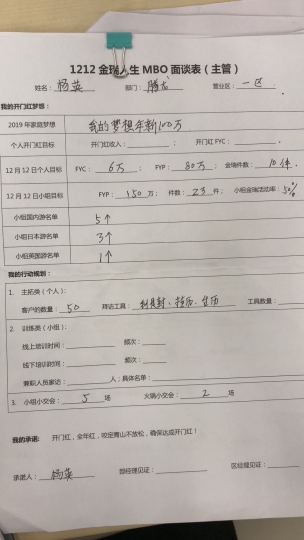 1212金瑞人生MBO面谈表（主管）
姓名：杨英 部门：腾龙 营业区：一区
我的开门红梦想：
2019年家庭梦想 我的梦想年薪100万
个人开门红目标 开门红收入： ； 开门红FYC： 。
12月12日个人目标 FYC：6万 ； FYP：80万 金瑞件数：10件.
12月12日小组目标 FYP：150万； 件数：23件； 小组金瑞活动率：50%
小组国内游名单 5个
小组日本游名单 3个
小组英国游名单 1个
我的行动规划：
1. 主拓类（个人）：
客户的数量：50 拜访工具：利是封、挂历、台历 工具数量：
2. 训练类（小组）：
线上培训时间： 频次： ；
线下培训时间： 频次： ；
兼职人员家访： 人；具体名单：
3. 小组小交会：5 场 火锅小交会：2 场
我的承诺：
开门红，全年红，咬定青山不放松，确保达成开门红！
承诺人：杨英 部经理见证： 区经理见证：